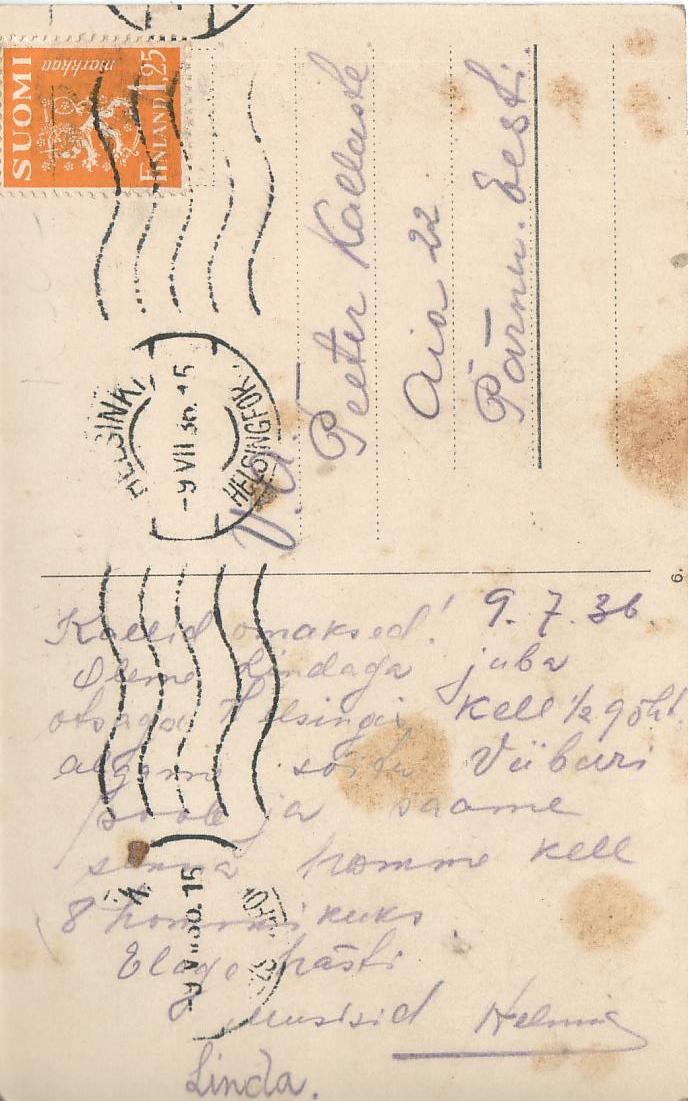 SUOMI
markkaa
1,25
FINLAND
HELSINKI
-9 VII 36. 15
HELSINGFORS
V. a.
Peeter Kallaste
Aia 22
Pärnu. Eesti.
6.
9. 7. 36.
Kallid omaksed!
Oleme Lindaga juba
otsaga Helsingis kell ½ 9 õht.
algame sõitu Viiburi
poole ja saame
sinna homme kell
8 hommikuks.
Elage hästi
musisid Helmi
Linda.